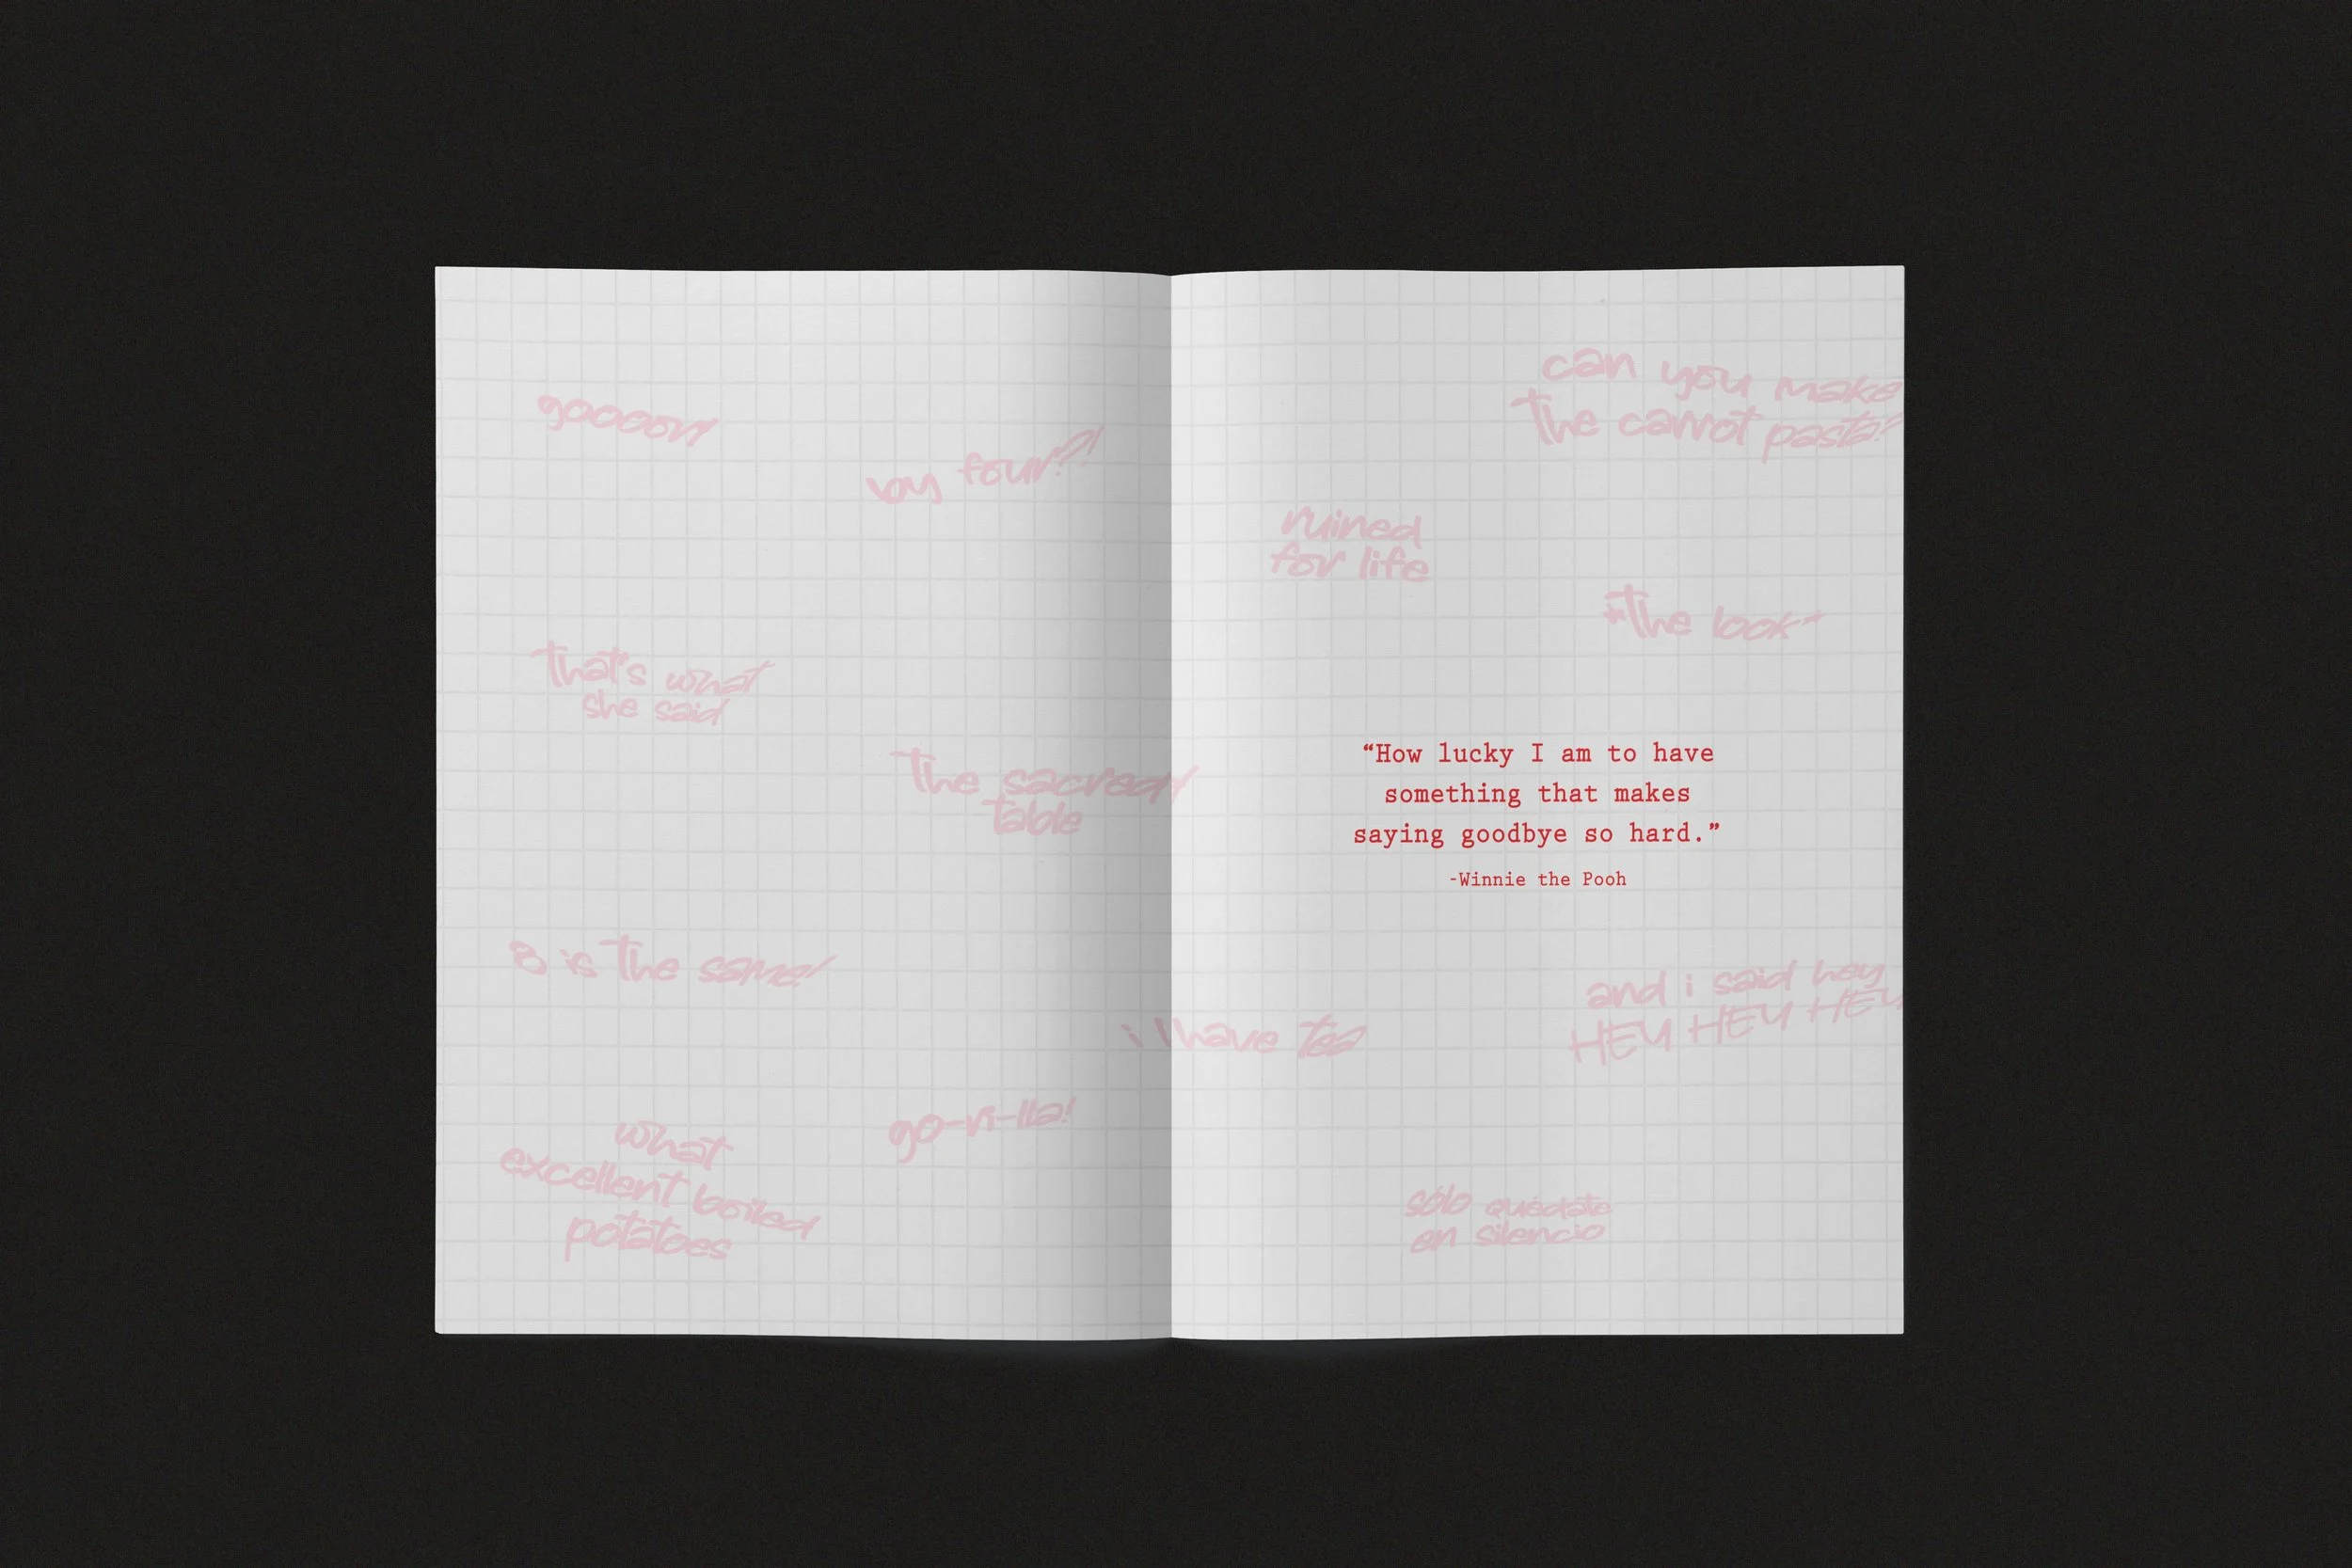 goooon!
voy four?!
that's what
she said
the sacred
table
8 is the same!
i have tea
go-ri-lla!
what
excellent boiled
potatoes
can you make
the carrot pasta?
ruined
for life
*the look*
“How lucky I am to have
something that makes
saying goodbye so hard.”
-Winnie the Pooh
and i said hey
HEY HEY HEY
sólo quédate
en silencio